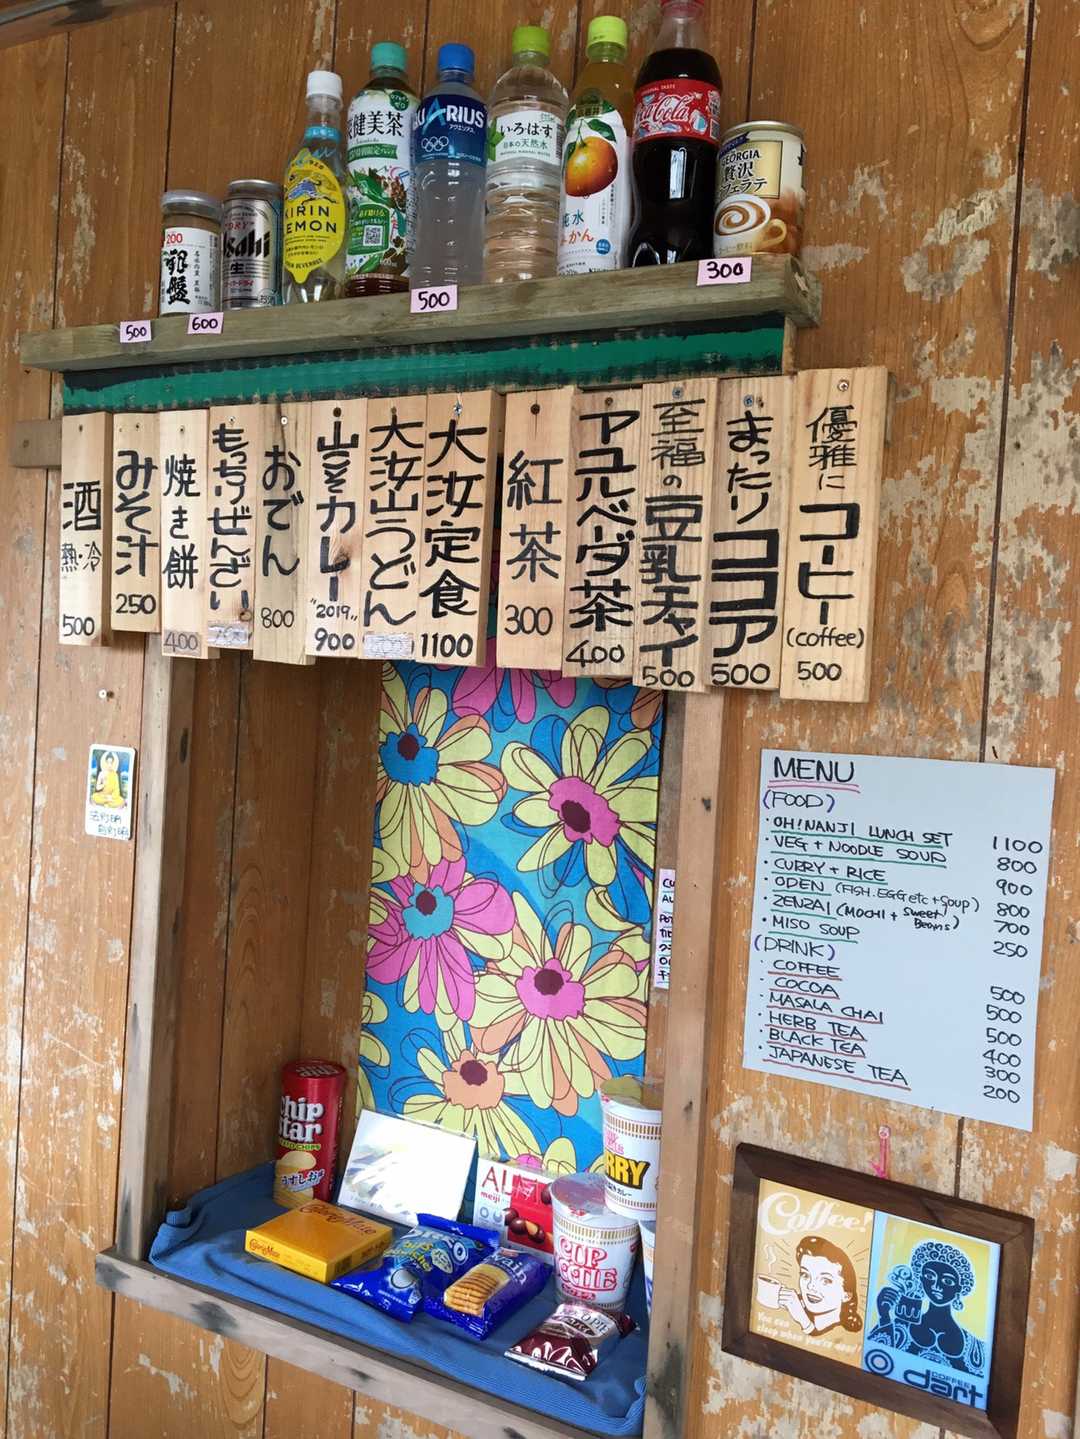 KIRIN
LEMON
健美茶
AQUARIUS
アクエリアス
い・ろ・は・す
日本の天然水
Coca-Cola
GEORGIA
贅沢
カフェラテ
200
銀盤
Asahi
生
500
600
500
300
優雅に
コーヒー
(coffee)
500
まったり
ココア
500
至福の
豆乳チャイ
500
アユルベーダ茶
400
紅茶
300
大汝定食
1100
大汝山うどん
山頂カレー
"2019"
900
おでん
800
もっちりぜんざい
焼き餅
400
みそ汁
250
酒
熱・冷
500
MENU
(FOOD)
・OH!NANJI LUNCH SET 1100
・VEG + NOODLE SOUP 800
・CURRY + RICE 900
・ODEN (FISH.EGG etc + Soup) 800
・ZENZAI (MOCHI + Sweet Beans) 700
・MISO SOUP 250
(DRINK)
・COFFEE 500
・COCOA 500
・MASALA CHAI 500
・HERB TEA 400
・BLACK TEA 300
・JAPANESE TEA 200
Chip
Star
POTATO CHIPS
うすしお味
Calorie Mate
meiji
CURRY
CUP
NOODLE
Coffee!
You can
sleep when you're dead!
COFFEE
dart